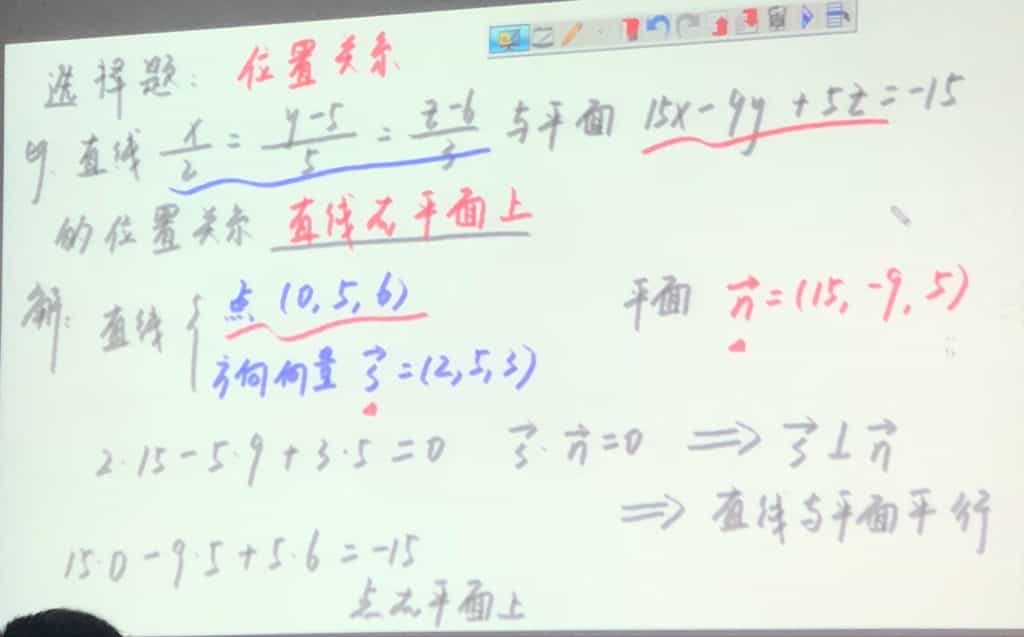 选择题: 位置关系
9. 直线 x/2 = y-5/5 = z-6/3 与平面 15x-9y+5z=-15
的位置关系 直线在平面上
解: 直线 { 点 (0,5,6) 平面 n⃗=(15,-9,5)
方向向量 s⃗=(2,5,3)
2·15-5·9+3·5=0 s⃗·n⃗=0 ⟹ s⃗⊥n⃗
⟹ 直线与平面平行
15·0-9·5+5·6=-15
点在平面上